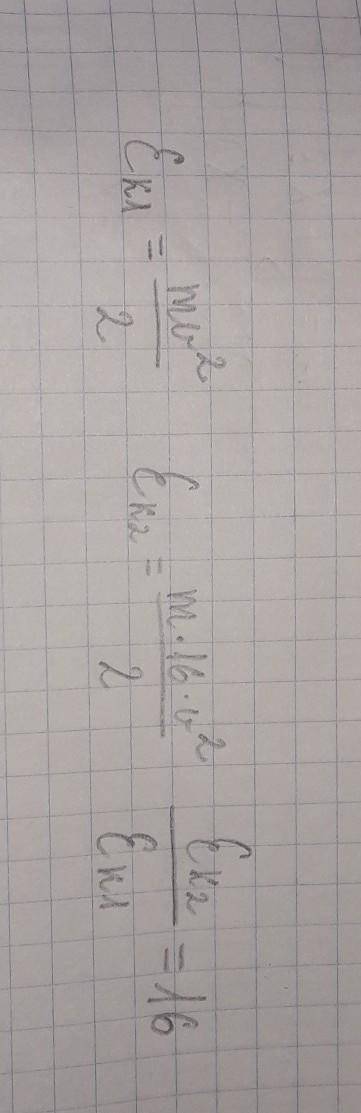 Eк1 = mv²/2 Eк2 = m·16·v²/2 Eк2/Eк1 = 16